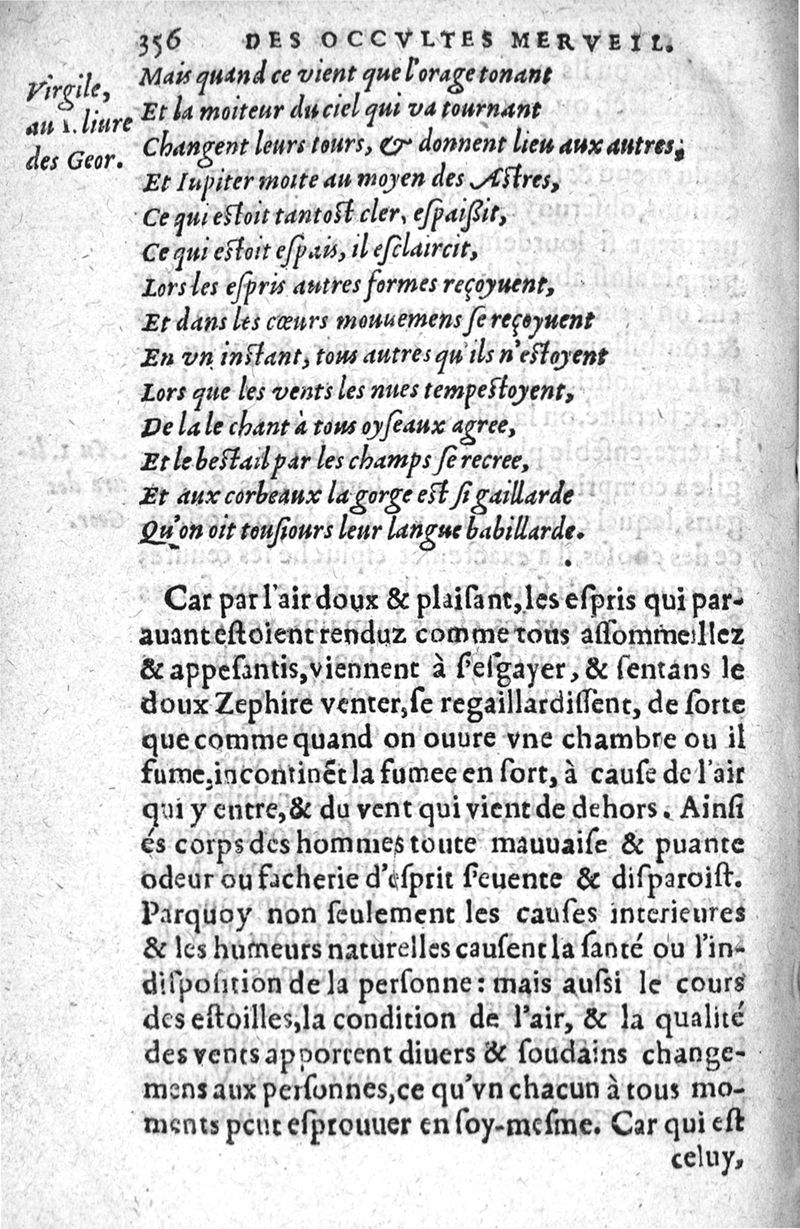 356 DES OCCVLTES MERVEIL.
Virgile,
au 1. liure
des Geor.
Mais quand ce vient que l'orage tonant
Et la moiteur du ciel qui va tournant
Changent leurs tours, & donnent lieu aux autres;
Et Iupiter moite au moyen des Astres,
Ce qui eſtoit tantoſt cler, eſpaißit,
Ce qui eſtoit eſpais, il eſclaircit,
Lors les eſpris autres formes reçoyuent,
Et dans les cœurs mouuemens ſe reçoyuent
En vn inſtant, tous autres qu'ils n'eſtoyent
Lors que les vents les nues tempeſtoyent,
De la le chant à tous oyſeaux agree,
Et le beſtail par les champs ſe recree,
Et aux corbeaux la gorge eſt ſi gaillarde
Qu'on oit touſiours leur langue babillarde.
Car par l'air doux & plaiſant, les eſpris qui par-
auant eſtoient renduz comme tous aſſommeillez
& appeſantis, viennent à ſ'eſgayer, & ſentans le
doux Zephire venter, ſe regaillardiſſent, de ſorte
que comme quand on ouure vne chambre ou il
fume, incontinẽt la fumee en ſort, à cauſe de l'air
qui y entre, & du vent qui vient de dehors. Ainſi
és corps des hommes toute mauuaiſe & puante
odeur ou facherie d'eſprit ſ'euente & diſparoiſt.
Parquoy non ſeulement les cauſes interieures
& les humeurs naturelles cauſent la ſanté ou l'in-
diſpoſition de la perſonne: mais auſſi le cours
des eſtoilles, la condition de l'air, & la qualité
des vents apportent diuers & ſoudains change-
mens aux perſonnes, ce qu'vn chacun à tous mo-
ments peut eſprouuer en ſoy-meſme. Car qui eſt
celuy,